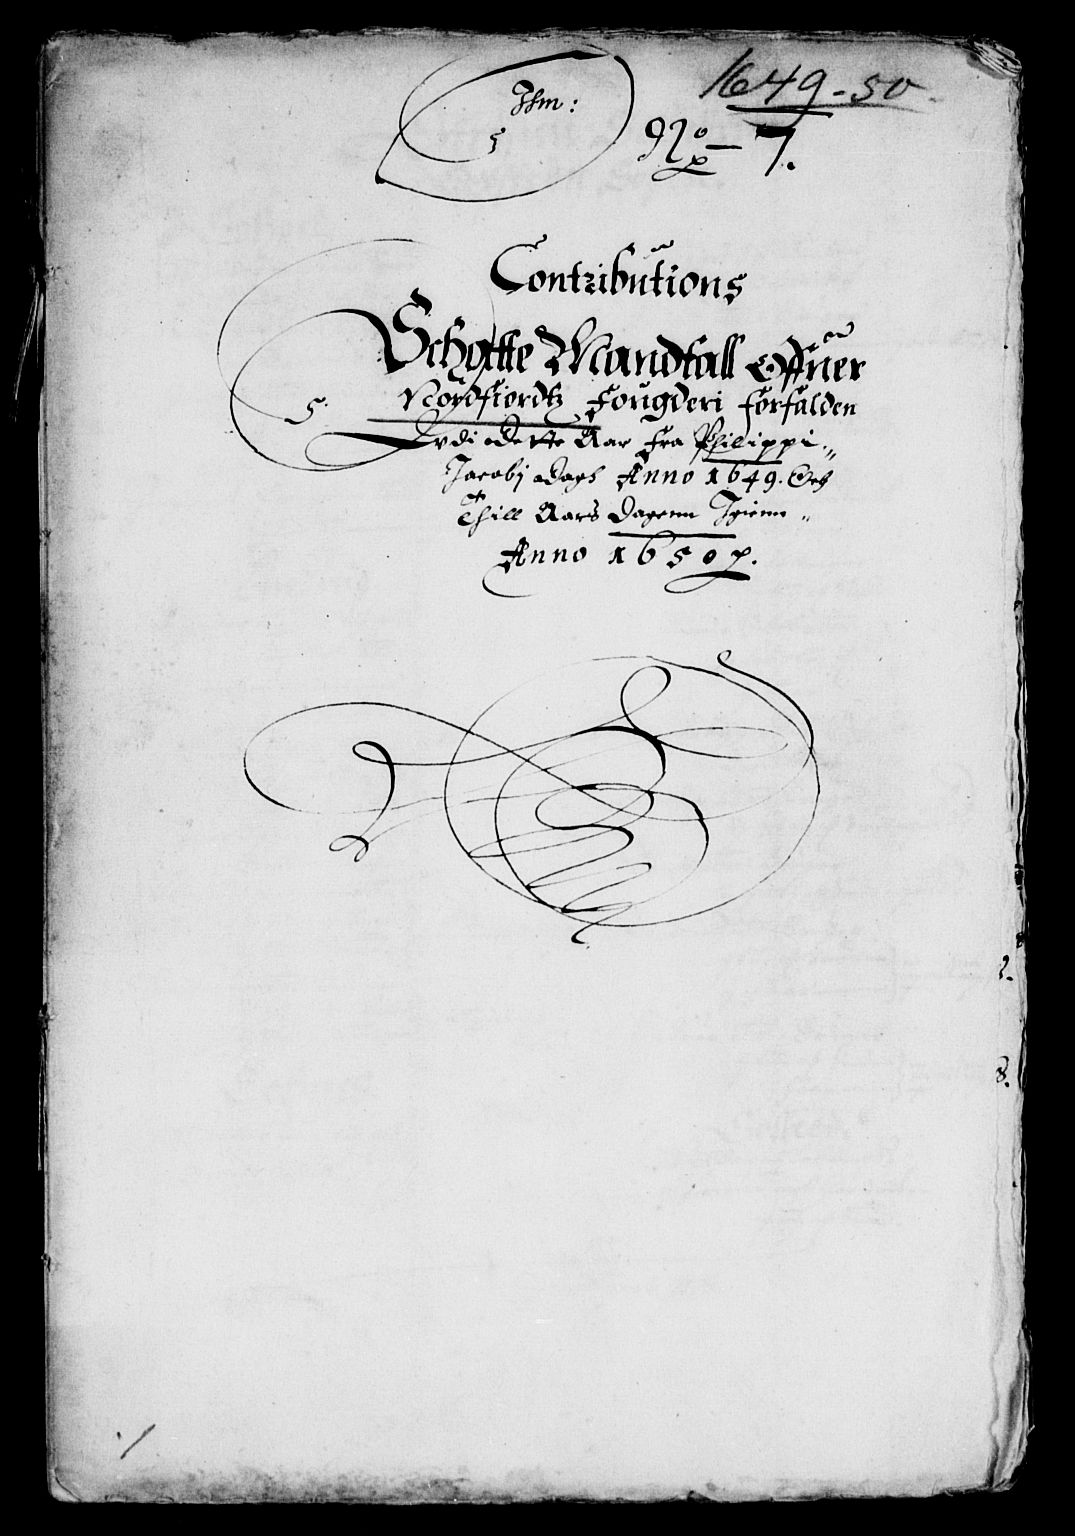 1649-50.
No 7.
5
Contributions
Schatte Mandtall Offuer
Nordfiordtz Fougderi forfalden
5.
Udi dette Aar Fra Philippi
Jacobj dags Anno 1649. Och
Thill Aars Dagenn Igienn
Anno 1650 p.
2.
8.
1